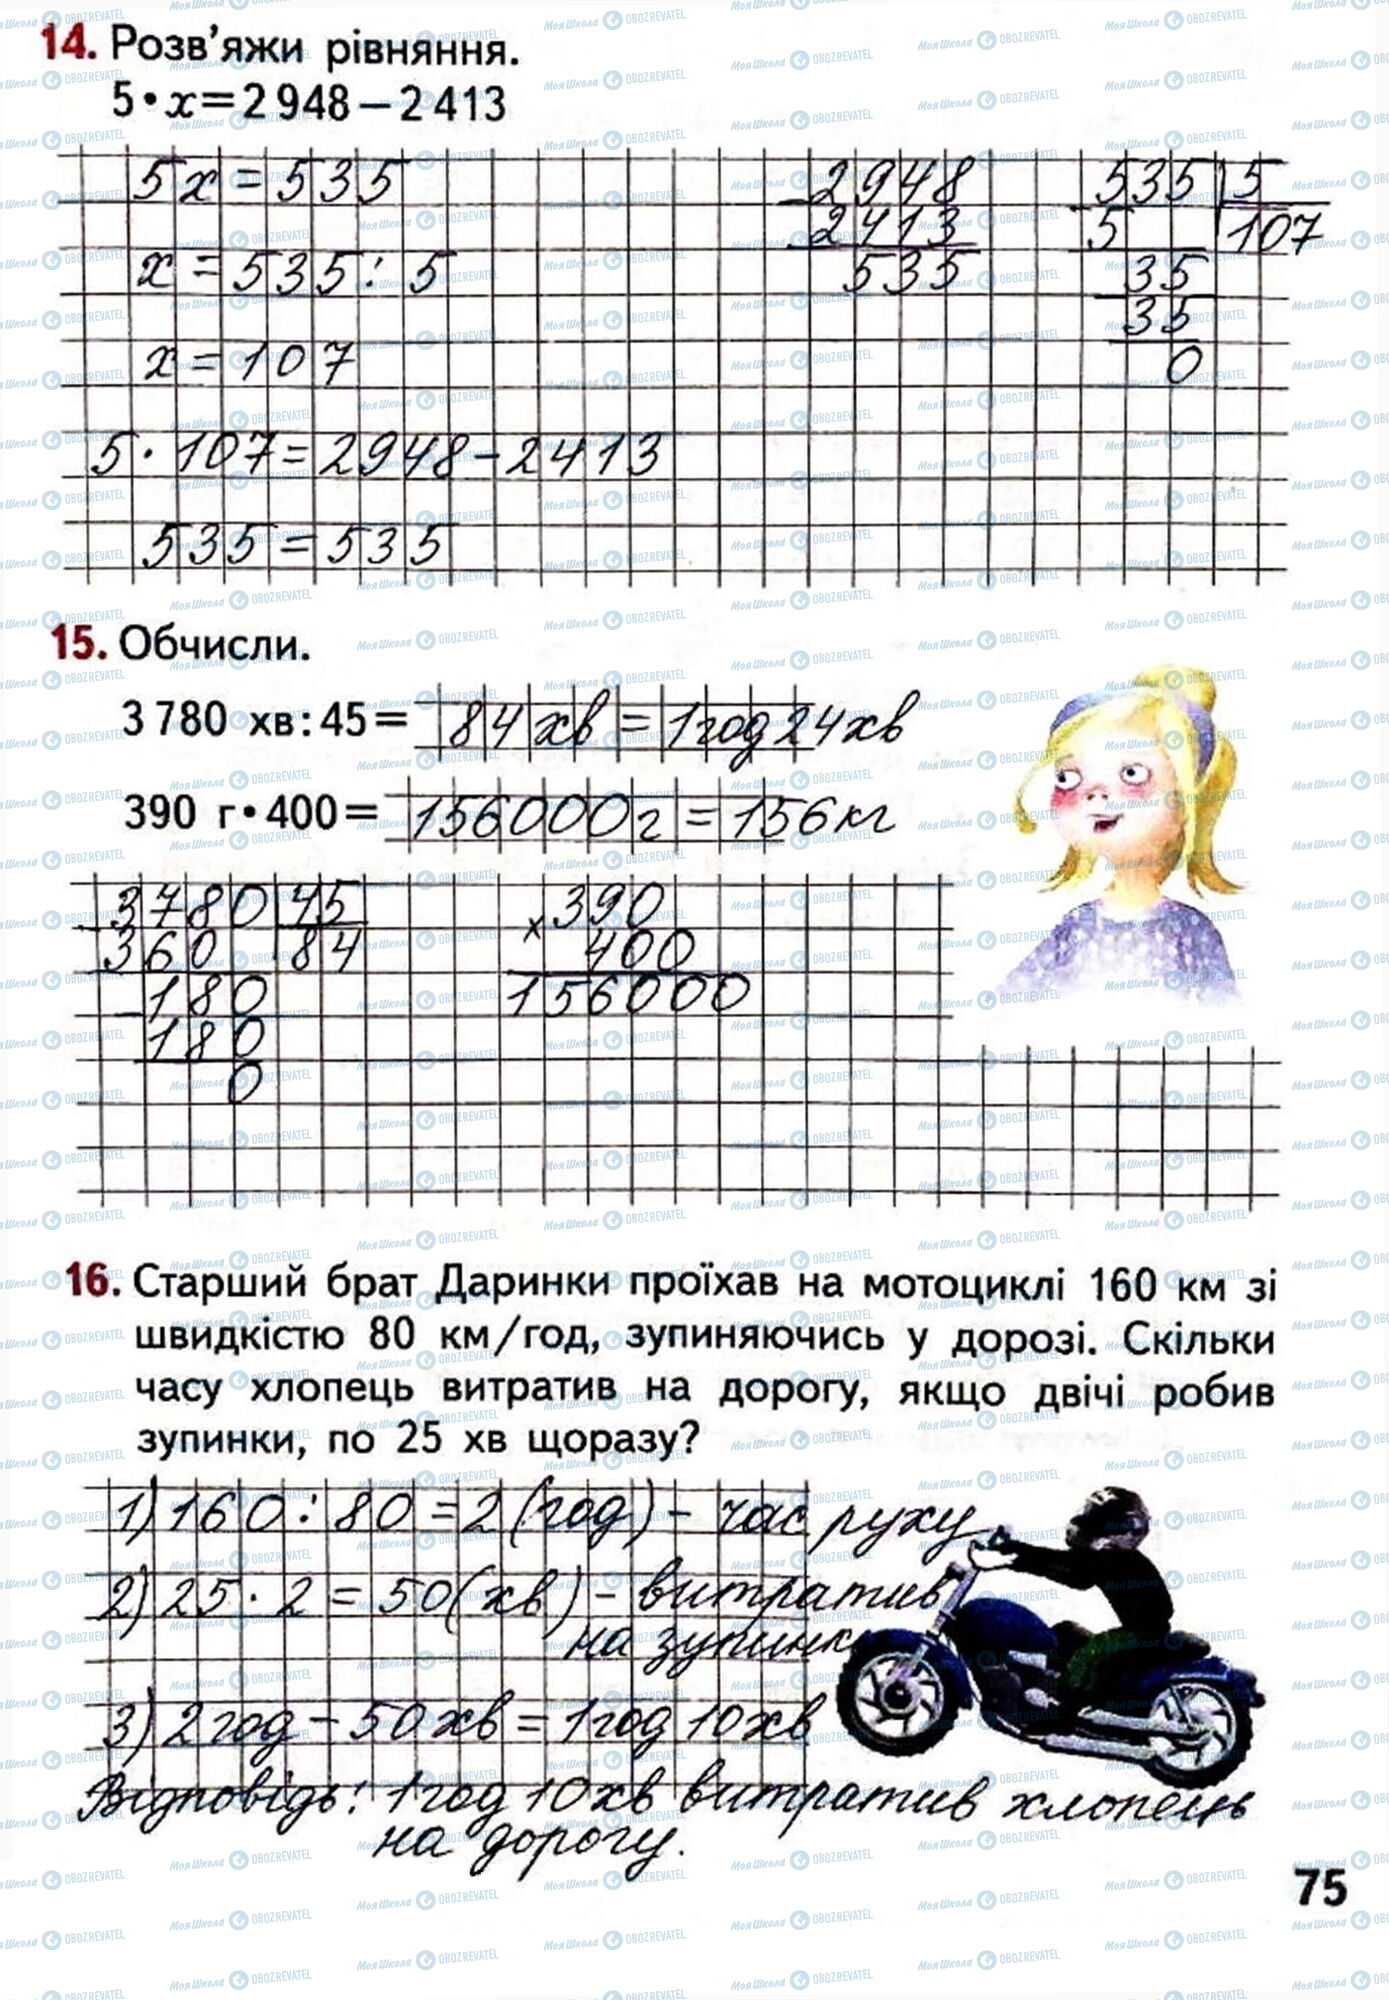 14. Розв'яжи рівняння.
5 • x = 2 948 – 2 413
5x = 535
x = 535 : 5
x = 107
5 · 107 = 2948 – 2413
535 = 535
– 2948
2413
535
535 | 5
– 5 | 107
35
35
0
15. Обчисли.
3 780 хв : 45 = 84 хв = 1 год 24 хв
390 г • 400 = 156000 г = 156 кг
– 3780 | 45
360 | 84
– 180
180
0
x 390
400
156000
16. Старший брат Даринки проїхав на мотоциклі 160 км зі
швидкістю 80 км/год, зупиняючись у дорозі. Скільки
часу хлопець витратив на дорогу, якщо двічі робив
зупинки, по 25 хв щоразу?
1) 160 : 80 = 2 (год) – час руху
2) 25 · 2 = 50 (хв) – витратив
на зупинк
3) 2 год – 50 хв = 1 год 10 хв
Відповідь: 1 год 10 хв витратив хлопець
на дорогу.
75
МояШкола OBOZREVATEL